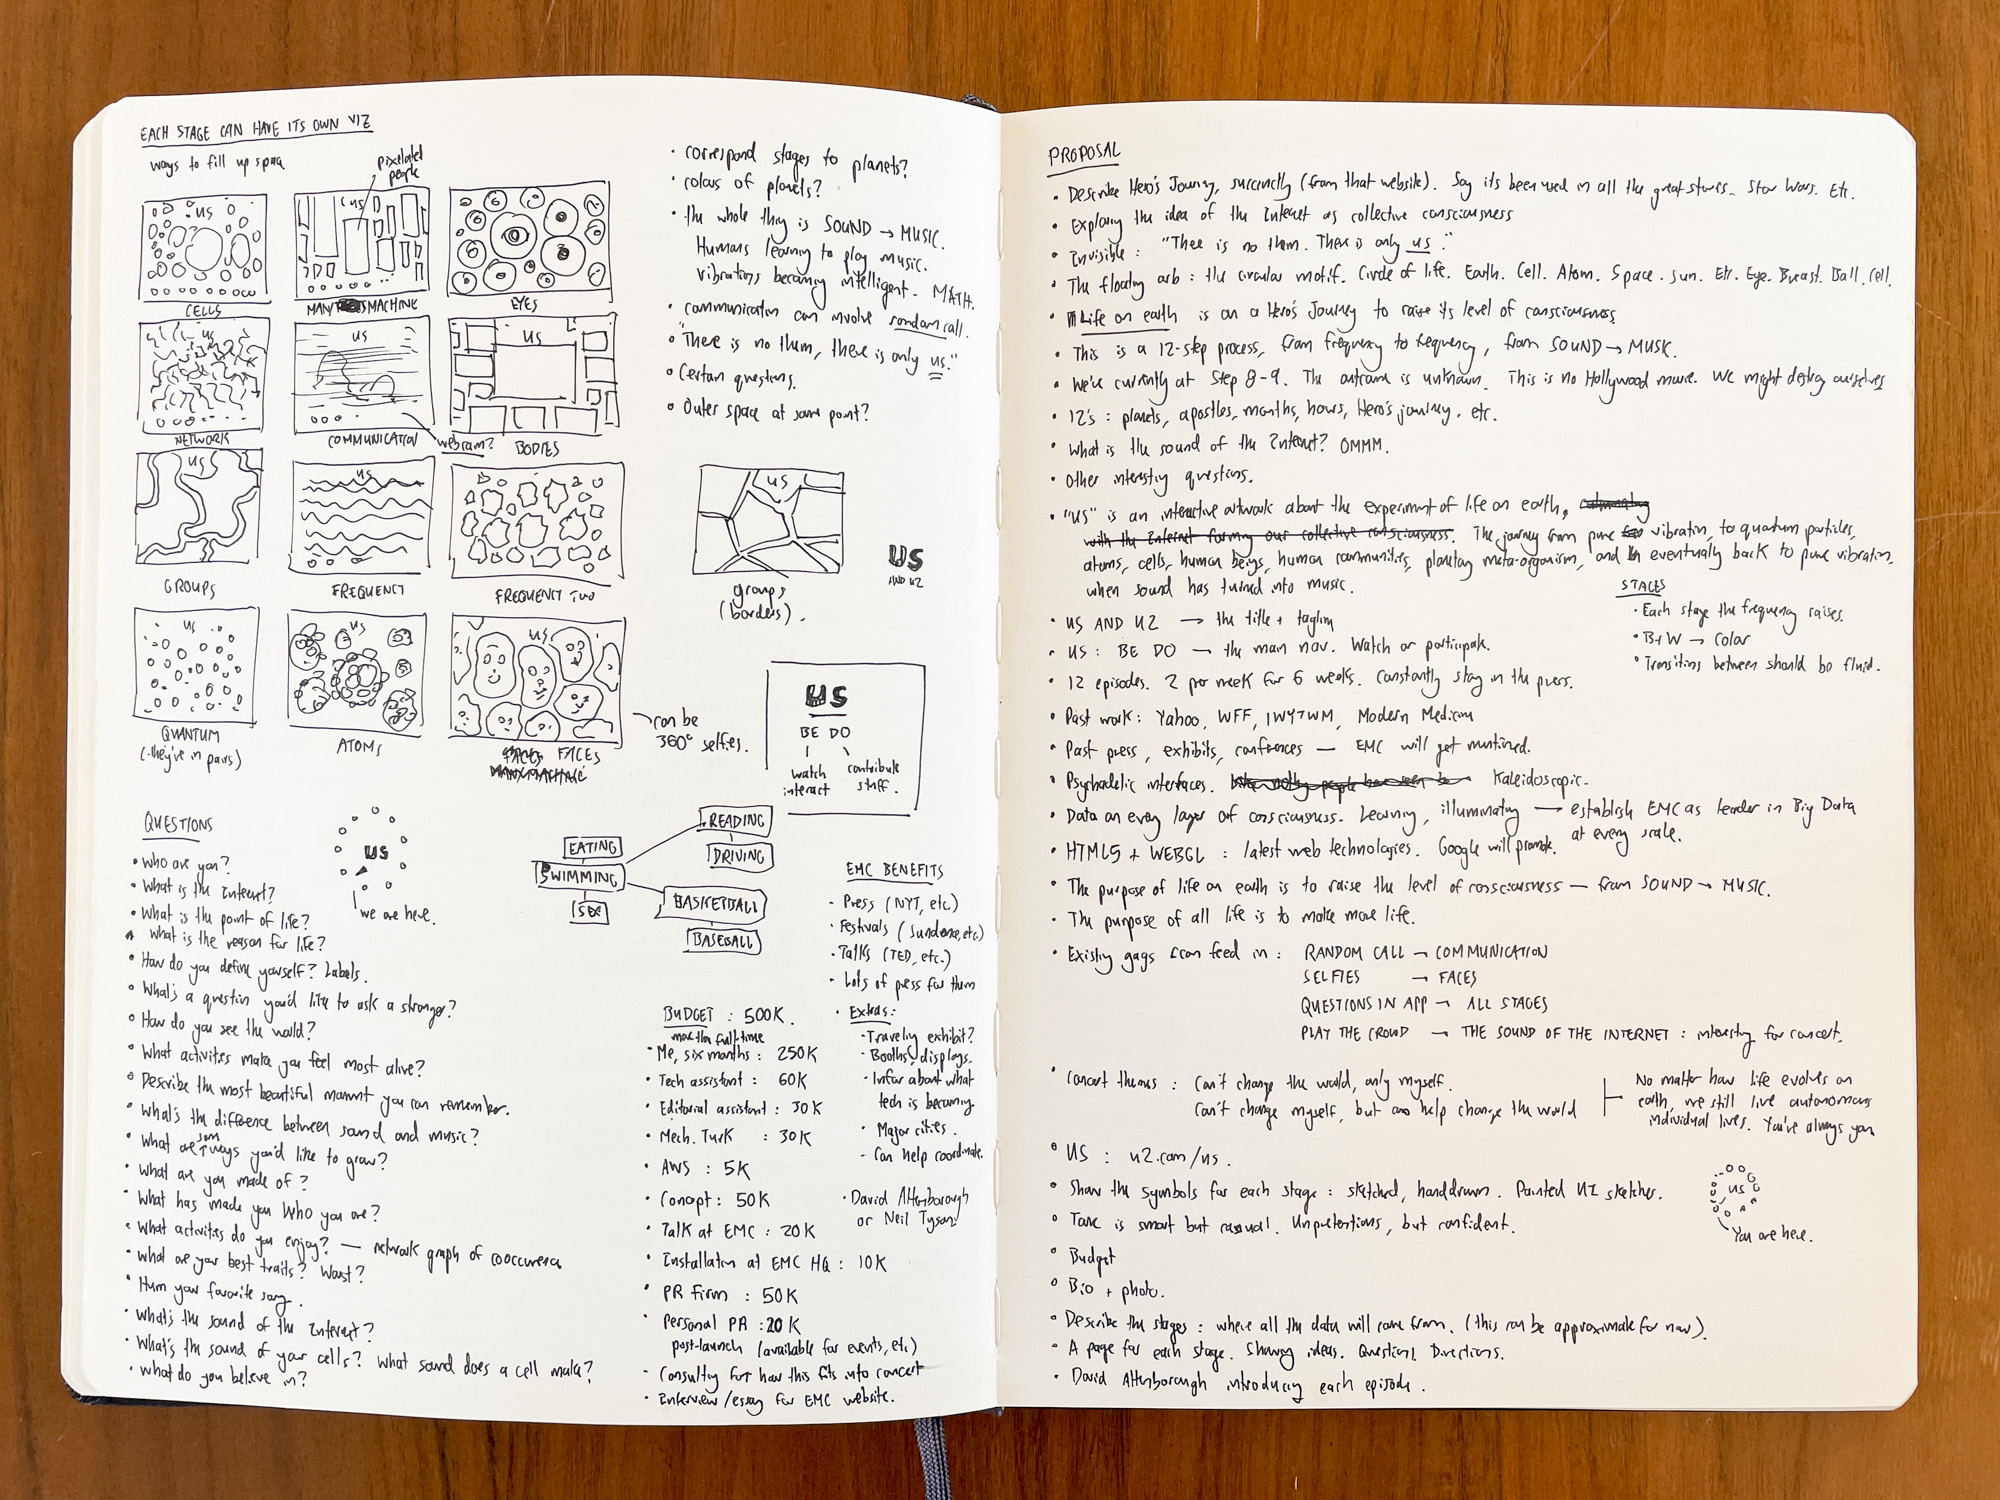 EACH STAGE CAN HAVE ITS OWN VIZ
ways to fill up space
pixelated
people
US
CELLS
US
MAN MACHINE
EYES
US
NETWORK
US
COMMUNICATION
webcam?
US
BODIES
US
GROUPS
US
FREQUENCY
FREQUENCY TWO
US
QUANTUM
(they're in pairs)
US
ATOMS
US
FACES FACES
MAN MACHINE
can be
360° selfies.
• correspond stages to planets?
• colors of planets?
• the whole thing is SOUND → MUSIC.
Humans learning to play music.
Vibrations becoming intelligent. MATH.
• communication can involve random call.
• "There is no them, there is only us."
• Certain questions.
• Outer space at some point?
US
groups
(borders).
US
AND U2
US
BE DO
watch
interact
contribute
stuff.
QUESTIONS
• Who are you?
• What is the Internet?
• What is the point of life?
• What is the reason for life?
• How do you define yourself? Labels.
• What's a question you'd like to ask a stranger?
• How do you see the world?
• What activities make you feel most alive?
• Describe the most beautiful moment you can remember.
• What's the difference between sound and music?
• What are some ways you'd like to grow?
• What are you made of?
• What has made you who you are?
• What activities do you enjoy? — network graph of cooccurence
• What are your best traits? Worst?
• Hum your favorite song.
• What's the sound of the Internet?
• What's the sound of your cells? What sound does a cell make?
• What do you believe in?
US
we are here.
READING
EATING
DRIVING
SWIMMING
SEX
BASKETBALL
BASEBALL
EMC BENEFITS
- Press (NYT, etc)
- Festivals (Sundance, etc)
- Talks (TED, etc.)
- Lots of press for them
• Extras:
- Traveling exhibit?
- Booths, displays.
- Infor about what
tech is becoming
- Major cities.
- Can help coordinate.
• David Attenborough
or Neil Tyson?
BUDGET : 500K.
full-time
• Me, six months : 250K
• Tech assistant : 60K
• Editorial assistant : 30K
• Mech. Turk : 30K
• AWS : 5K
• Concept : 50K
• Talk at EMC : 20K
• Installation at EMC HQ : 10K
• PR firm : 50K
• Personal PR : 20K
post-launch (available for events, etc)
- Consulting for how this fits into concert
- Interview/essay for EMC website.
PROPOSAL
• Describe Hero's Journey, succinctly (from that website). Say its been used in all the great stories. Star Wars. Etc.
• Exploring the idea of the Internet as collective consciousness
• Invisible : "There is no them. There is only us."
• The floating orb : the circular motif. Circle of life. Earth. Cell. Atom. Space. Sun. Etc. Eye. Breast. Ball. Cell.
• Life on earth is on a Hero's Journey to raise its level of consciousness
• This is a 12-step process, from frequency to frequency, from SOUND → MUSIC.
• We're currently at Step 8-9. The outcome is unknown. This is no Hollywood movie. We might destroy ourselves
• 12's : planets, apostles, months, hours, Hero's journey, etc.
• What is the sound of the Internet? OMMM.
• Other interesting questions.
• "US" is an interactive artwork about the experiment of life on earth, culminating
with the Internet forming our collective consciousness. The journey from pure vibration, to quantum particles,
atoms, cells, human beings, human communities, planetary meta-organism, and eventually back to pure vibration,
when sound has turned into music.
STAGES
• Each stage the frequency raises.
• B+W → Color
• Transitions between should be fluid.
• US AND U2 → the title + tagline
• US : BE DO → the main nav. Watch or participate.
• 12 episodes. 2 per week for 6 weeks. Constantly stay in the press.
• Past work : Yahoo, WFF, IWYTWM, Modern Medicine
• Past press, exhibits, confrences — EMC will get mentioned.
• Psychadelic interfaces. Kaleidoscopic.
• Data on every layer of consciousness. Learning, illuminating → establish EMC as leader in Big Data
at every scale.
• HTML5 + WEBGL : latest web technologies. Google will promote.
• The purpose of life on earth is to raise the level of consciousness — from SOUND → MUSIC.
• The purpose of all life is to make more life.
• Existing gags can feed in : RANDOM CALL → COMMUNICATION
SELFIES → FACES
QUESTIONS IN APP → ALL STAGES
PLAY THE CROWD → THE SOUND OF THE INTERNET : interesting for concert.
• Concert themes : Can't change the world, only myself.
Can't change myself, but can help change the world
No matter how life evolves on
earth, we still live autonomous
individual lives. You're always you.
• US : u2.com/us.
• Show the symbols for each stage : sketched, handdrawn. Painted UI sketches.
• Tone is smart but casual. Unpretentious, but confident.
US
You are here.
• Budget
• Bio + photo.
• Describe the stages : where all the data will come from. (this can be approximate for now).
• A page for each stage. Showing ideas. Questions. Directions.
• David Attenborough introducing each episode.